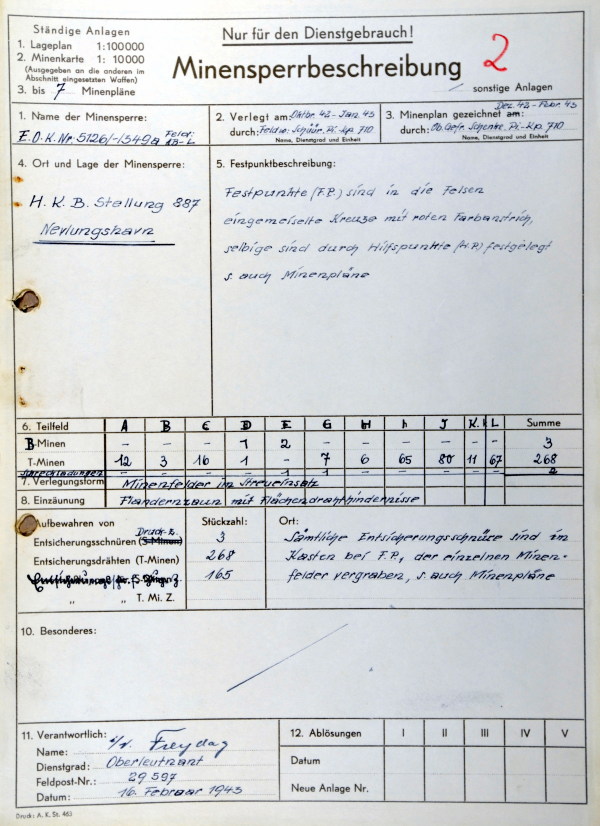 Ständige Anlagen
1. Lageplan 1:100000
2. Minenkarte 1: 10000
(Ausgegeben an die anderen im
Abschnitt eingesetzten Waffen)
3. bis 7 Minenpläne
Nur für den Dienstgebrauch!
Minensperrbeschreibung 2
sonstige Anlagen
1. Name der Minensperre:
E.O.K. Nr. 5126/-1549a Feld: A-L
2. Verlegt am: Oktbr. 42 - Jan. 43
durch: Feldw. Schüür, Pi.-Kp. 710
Name, Dienstgrad und Einheit
3. Minenplan gezeichnet am: Dez. 42 - Febr. 43
durch: Ob. Gefr. Schenke, Pi-Kp. 710
Name, Dienstgrad und Einheit
4. Ort und Lage der Minensperre:
H. K. B. Stellung 887
Nevlungshavn
5. Festpunktbeschreibung:
Festpunkte (F.P.) sind in die Felsen
eingemeiselte Kreuze mit roten Farbanstrich,
selbige sind durch Hilfspunkte (H.P.) festgelegt
s. auch Minenpläne
6. Teilfeld A B C D E G H h J K L Summe
B-Minen - - - 1 2 - - - - - - 3
T-Minen 12 3 16 1 - 7 6 65 80 11 67 268
Sprengladungen - - - - 1 1 - - - - - 2
7. Verlegungsform Minenfelder im Streueinsatz
8. Einzäunung Flandernzaun mit Flächendrahthindernisse
Aufbewahren von Stückzahl: Ort:
Druck-Z.
Entsicherungsschnüren (S-Minen) 3
Entsicherungsdrähten (T-Minen) 268
165
" " T. Mi. Z.
Sämtliche Entsicherungsschnüre sind in
Kasten bei F.P., der einzelnen Minen-
felder vergraben, s. auch Minenpläne
10. Besonderes:
11. Verantwortlich:
Name: Freydag
Dienstgrad: Oberleutnant
Feldpost-Nr.: 29597
Datum: 16. Februar 1943
12. Ablösungen I II III IV V
Datum
Neue Anlage Nr.
Druck: A. K. St. 463